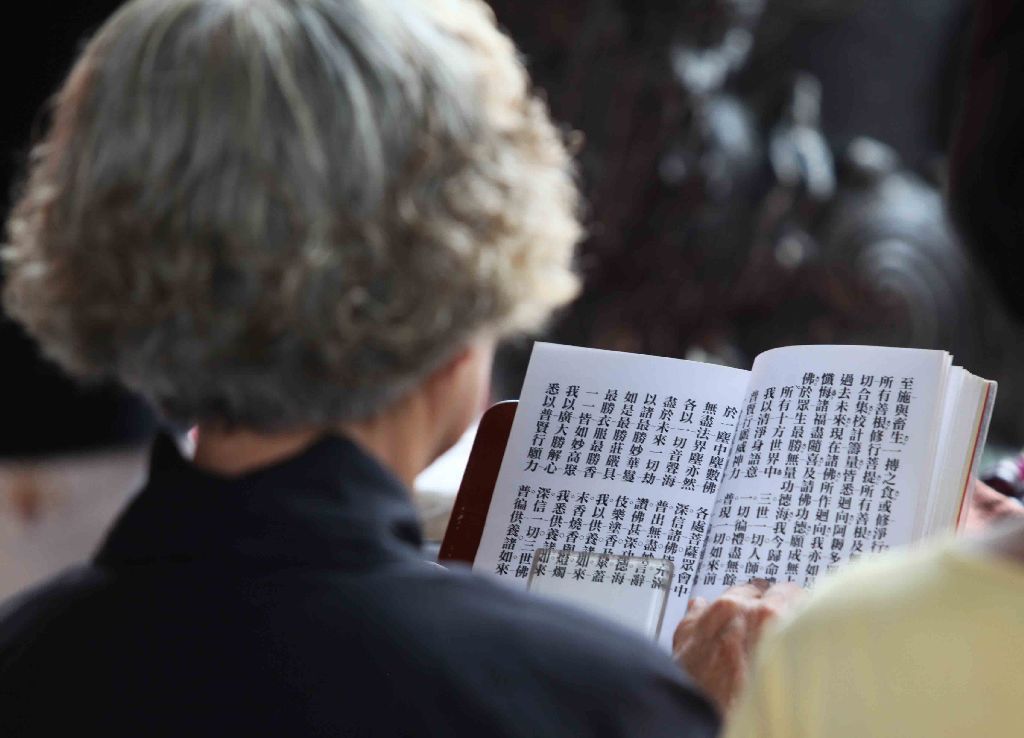 至施與畜生一摶之食或修淨行
所有善根修行菩提所有善根及
切合集校計籌量皆悉迴向阿耨
過去未來現在諸佛所作迴向我亦如
懺悔諸福盡隨喜及請佛功德願成無
佛於眾生最勝無量功德海我今歸命
所有十方世界中 三世一切人師
我以清淨身語意 一切徧禮盡無餘
普賢行願威神力 普現 一切如來前
於一塵中塵數佛 各處菩薩眾會中
無盡法界塵亦然 深信諸佛
各以一切音聲海 普出無盡妙言辭
盡於未來一切劫 讚佛甚深功德海
以諸最勝妙華鬘 伎樂塗香及傘蓋
如是最勝莊嚴具 我以供養諸如來
最勝衣服最勝香 末香燒香與燈燭
一一皆如妙高聚 我悉供養諸如來
我以廣大勝解心 深信一切三世佛
悉以普賢行願力 普徧供養諸如來